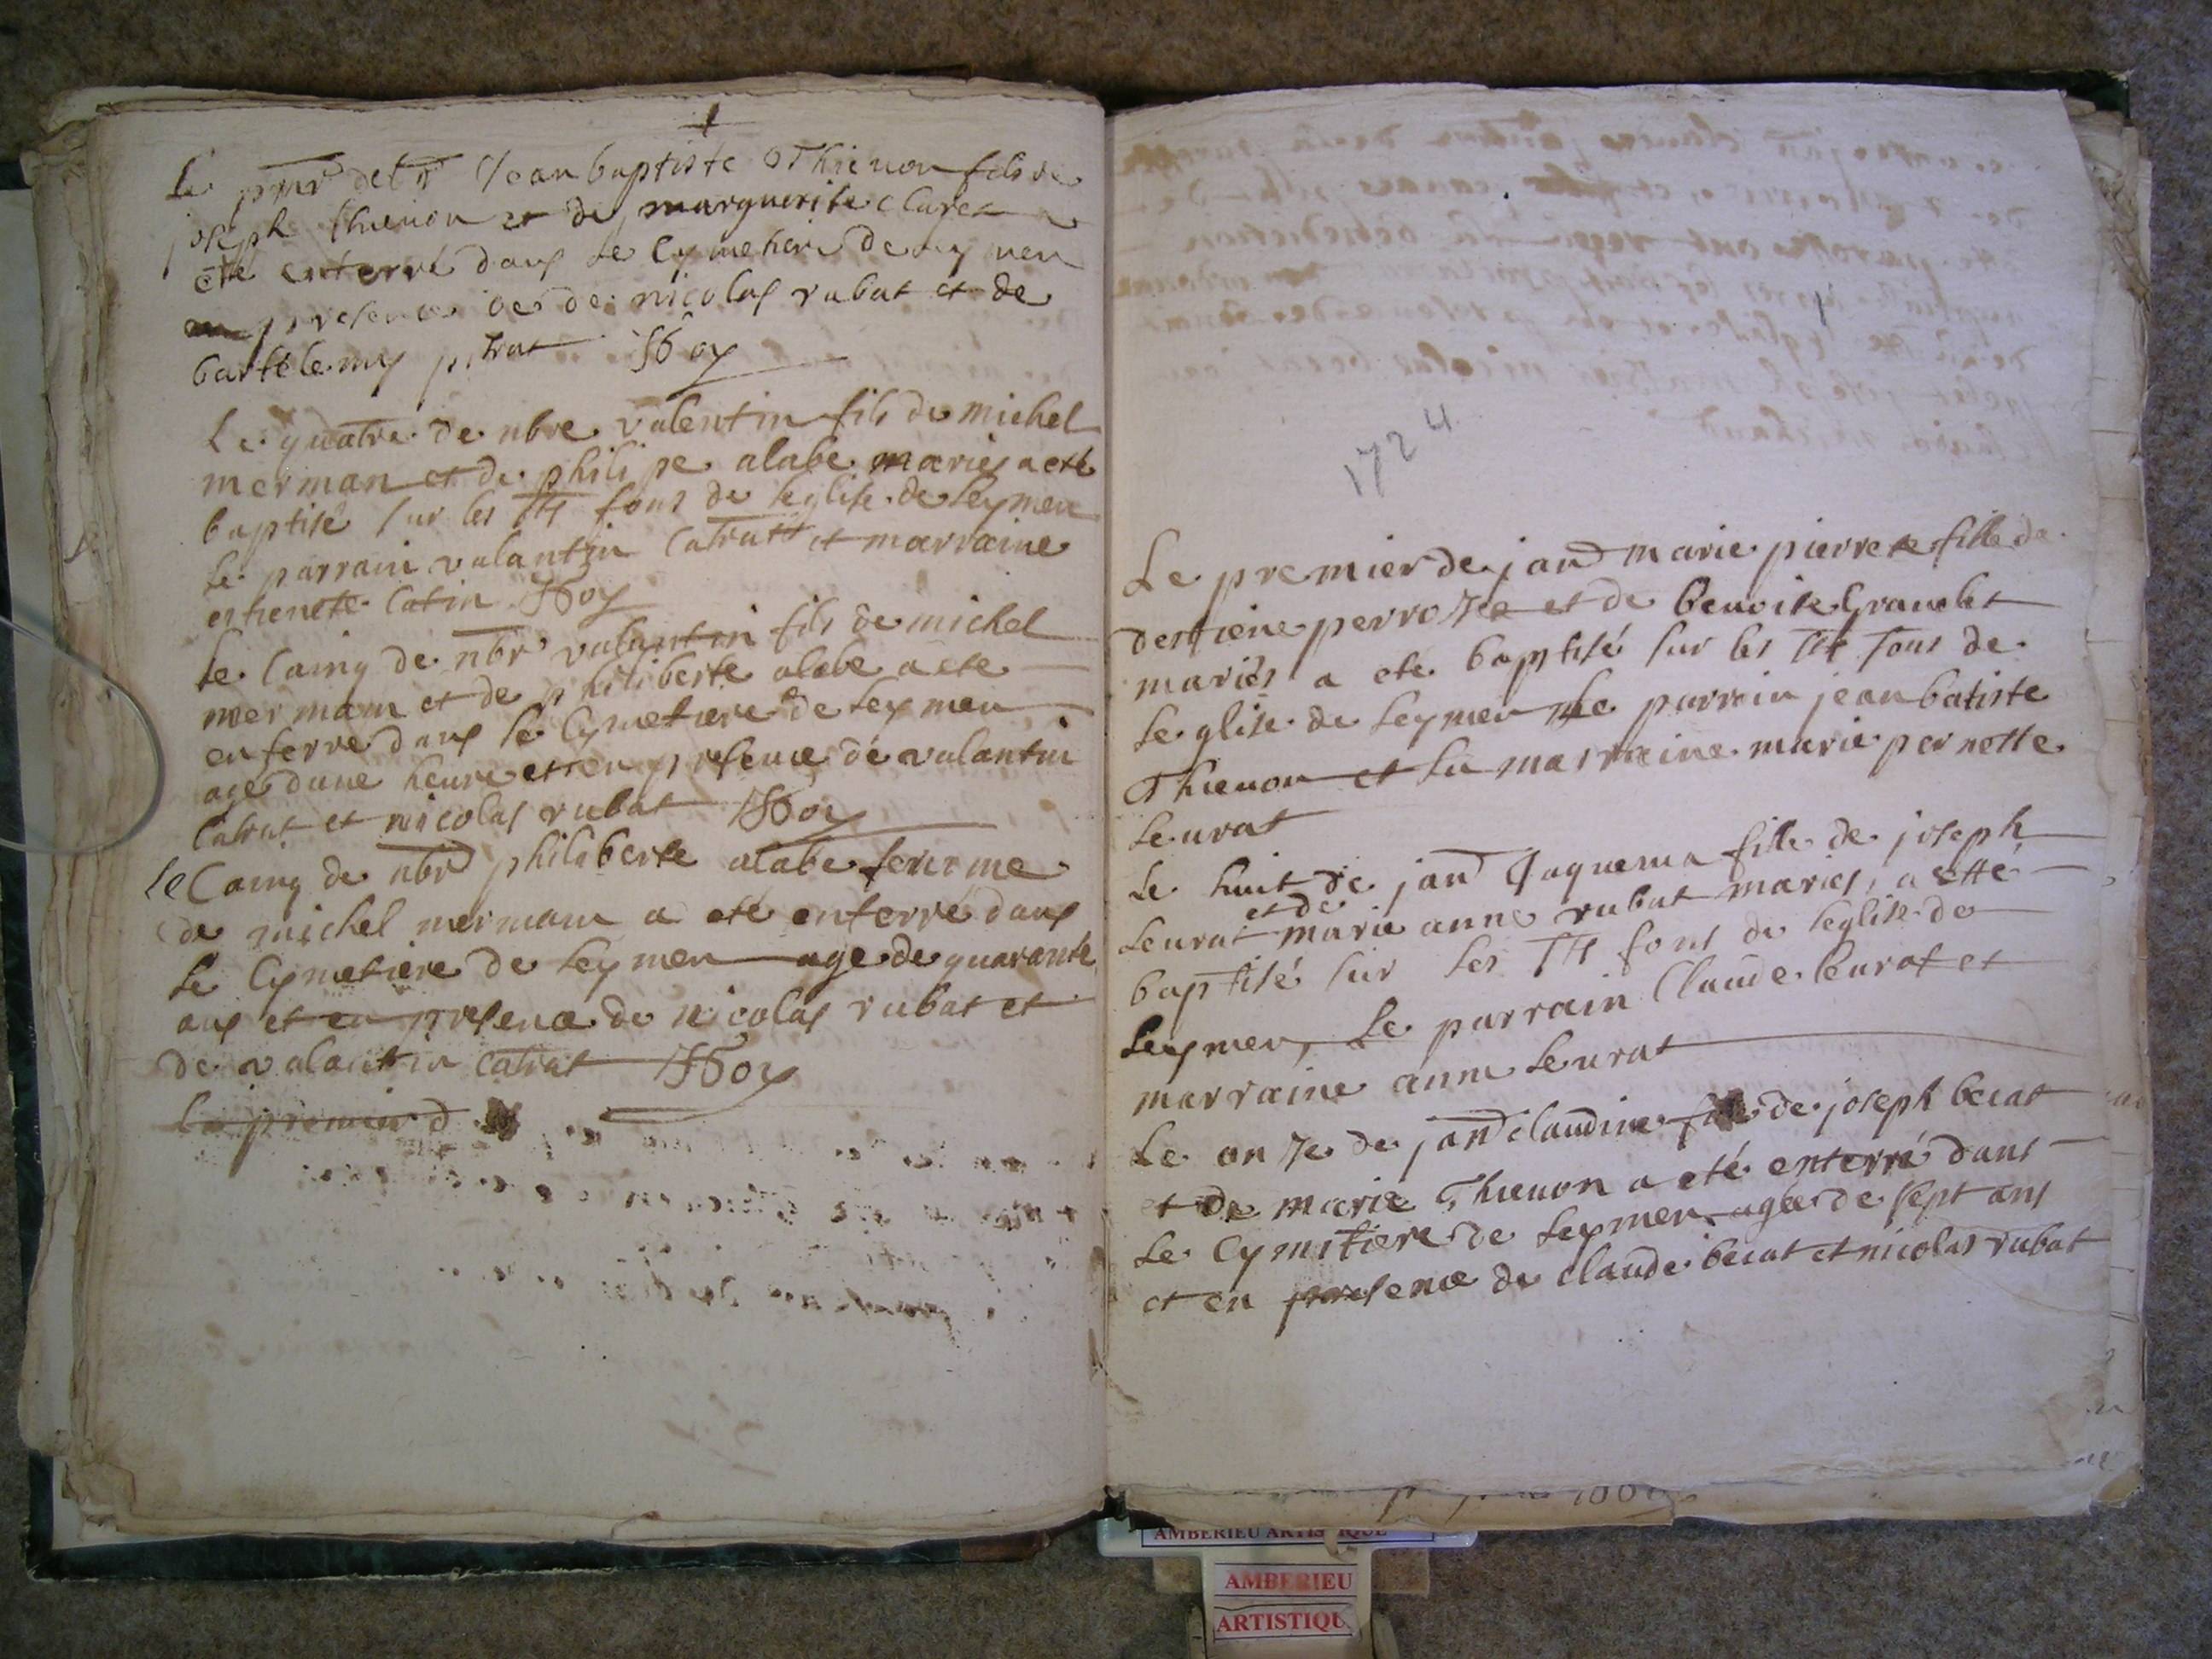 Le pmr de Jean baptiste Thienon fils de
joseph thienon et de marguerite claret a
ete enterré dans le Cymetiere de leymen
en presence de de nicolas rubat et de
bartelemy pitrat Hoy
Le quatre de nbre valentin fils de michel
merman et de philipe alabe mariés a ete
baptisé sur les Sts fons de leglise de leymen
Le parrain valantin Catrat et marraine
estienete Catin Hoy
Le Cainq de nbr valantin fils de michel
mermam et de philiberte alabe a ete
enterre dans le Cymetiere de leymen
agé dune heure et en presence de valantin
Catrat et nicolas rubat Hoy
le Cainq de nbr philiberte alabe femme
de michel mermam a ete enterré dans
le Cymetiere de leymen age de quarante
ans et en presence de nicolas rubat et
de valantin Catrat Hoy
Le premier d
1724
Le premier de janr marie pierrete fille de
destiene perroze et de benoite Granclet
mariés a ete baptisé sur les Sts fons de
leglise de leymen le parrain jean batiste
Thienon et la marraine marie pernette
leurat
Le huit de janr Jaquema fille de joseph
leurat et de marie anne rubat mariés, a etté
baptisé sur les Sts fons de leglise de
leymen, Le parrain Claude leurat et
marraine anne leurat
Le onze de janr claudine fille de joseph becat
et de marie Thienon a eté enterré dans
Le Cymitiere de leymen agée de sept ans
et en presence de claude becat et nicolas rubat
AMBERIEU ARTISTIQUE
AMBERIEU
ARTISTIQU